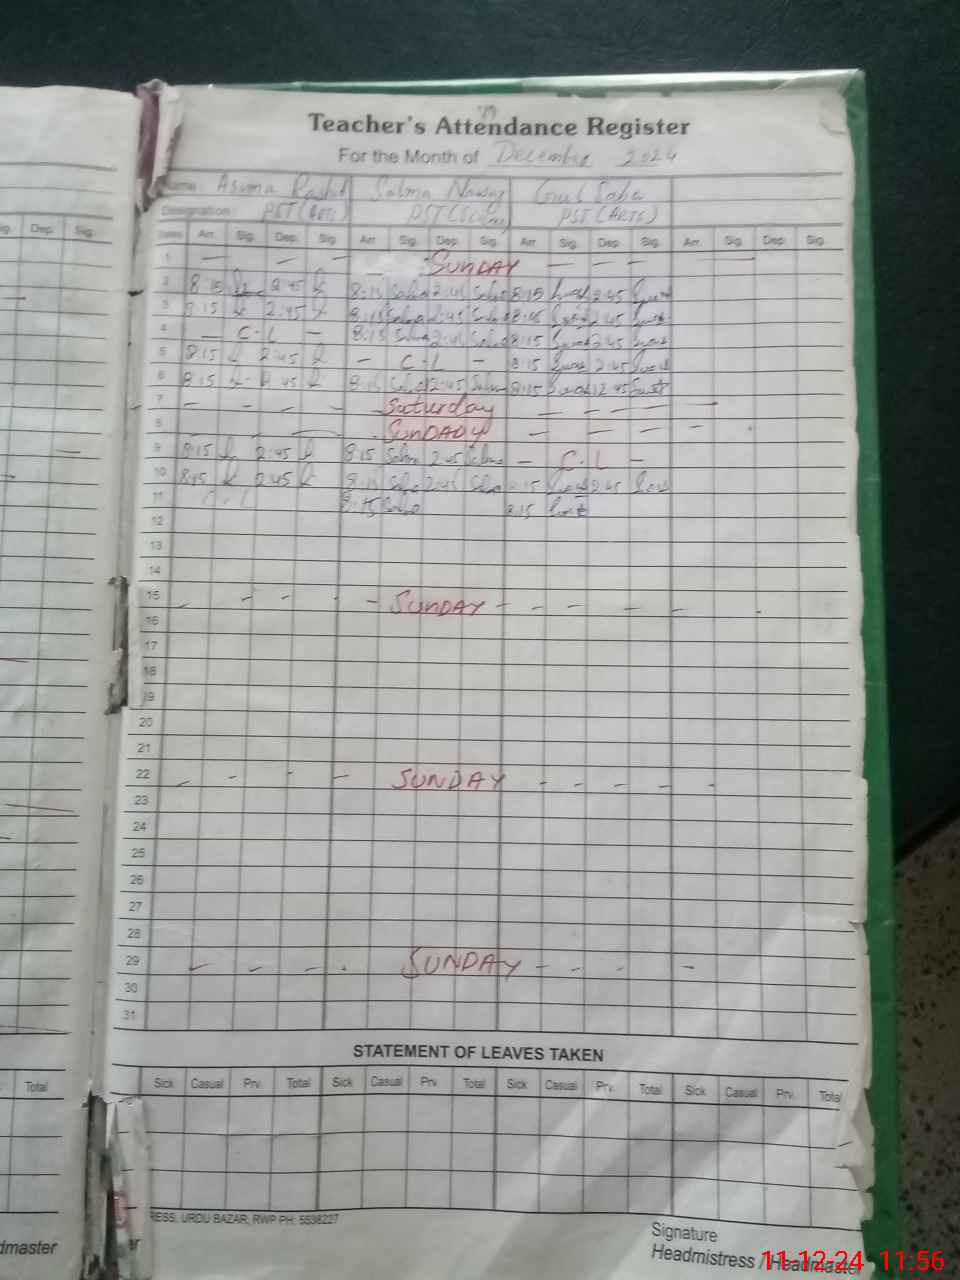 Teacher's Attendance Register
For the Month of December 2024
Name Asma Rashid Salma Nawaz Gul Saba
Designation PST (ARTS) PST (Science) PST (ARTS)
Sig. Dep. Sig. Dates Arr. Sig. Dep. Sig. Arr. Sig. Dep. Sig. Arr. Sig. Dep. Sig. Arr. Sig. Dep. Sig.
1 — — — — SUNDAY — — — —
2 8:15 2:45 8:15 Salma 2:45 Salma 8:15 2:45
3 8:15 2:45 8:15 Salma 2:45 Salma 8:15 2:45
4 — C.L — 8:15 Salma 2:45 Salma 8:15 2:45
5 8:15 2:45 — C.L — 8:15 2:45
6 8:15 2:45 8:15 Salma 2:45 Salma 8:15 2:45
7 — — — — Saturday — — — — —
8 — — — SUNDADY — — — —
9 8:15 2:45 8:15 Salma 2:45 Salma — C.L —
10 8:15 2:45 8:15 Salma 2:45 Salma 8:15 2:45
11 C.L 8:15 Salma 8:15
12
13
14
15 - - - - - SUNDAY - - - - - -
16
17
18
19
20
21
22 - - - - SUNDAY - - - - -
23
24
25
26
27
28
29 - - - - SUNDAY - - - -
30
31
STATEMENT OF LEAVES TAKEN
Total Sick Casual Prv. Total Sick Casual Prv. Total Sick Casual Prv. Total Sick Casual Prv. Total
RESS, URDU BAZAR, RWP PH: 5538227
Signature
dmaster er Headmistress / Headmaster
11-12-24 11:56